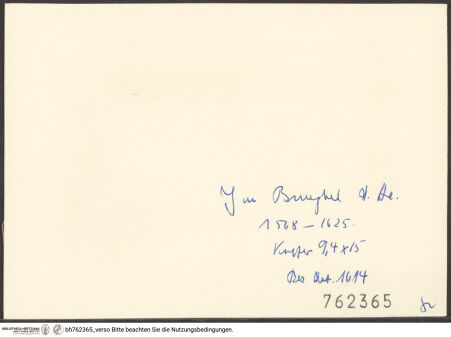 Jan Brueghel d. Ae.
1568–1625.
Kupfer 9,4 x 15
Bez. dat. 1614
762365
BIBLIOTHECA HERTZIANA bh762365_verso Bitte beachten Sie die Nutzungsbedingungen.